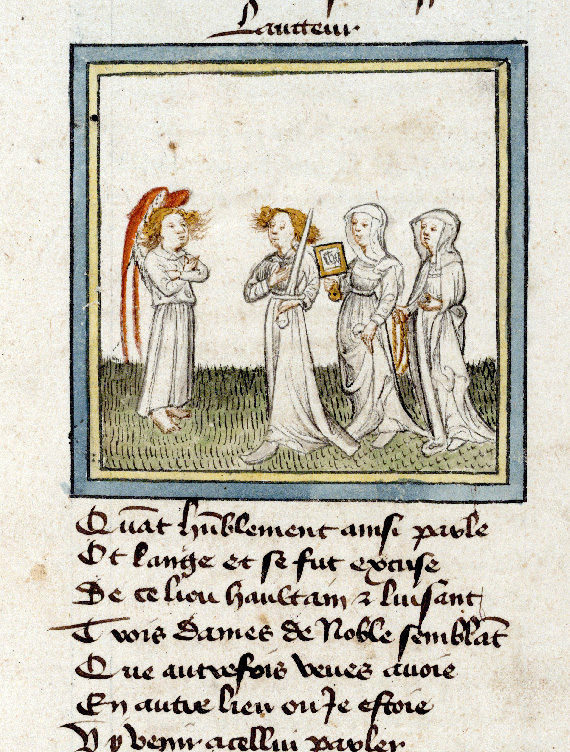 Laucteur
Quāt hūblement ainsi parle
Ot lange et se fut excuse
De ce lieu haultain ⁊ luisant
Trois dames de Noble semblāt
Que autrefois veues auoie
En autre lieu ou Je estoie
Vy venir a cellui parler